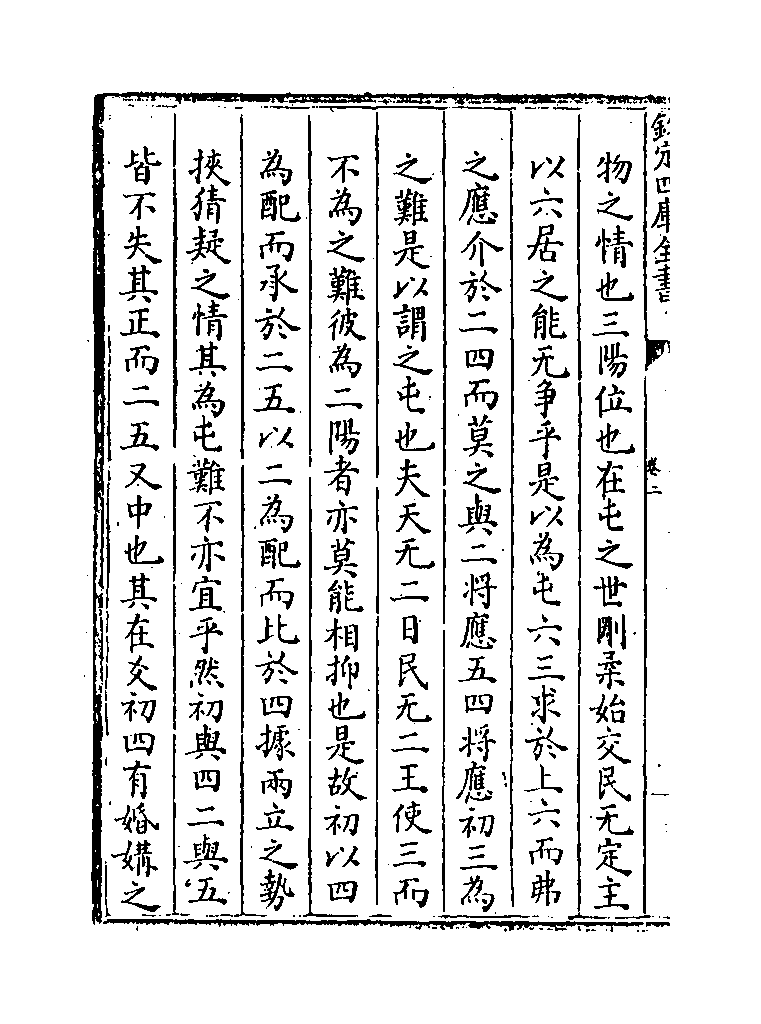 欽定四庫全書
卷二
物之情也三陽位也在屯之世剛柔始交民无定主
以六居之能无争乎是以為屯六三求於上六而弗
之應介於二四而莫之與二将應五四将應初三為
之難是以謂之屯也夫天无二日民无二王使三而
不為之難彼為二陽者亦莫能相抑也是故初以四
為配而承於二五以二為配而比於四據兩立之勢
挾猜疑之情其為屯難不亦宜乎然初與四二與五
皆不失其正而二五又中也其在爻初四有婚媾之